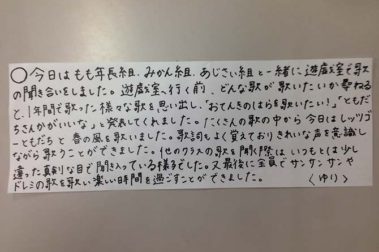 ○今日はもも年長組、みかん組、あじさい組と一緒に遊戯室で歌
の聞き合いをしました。遊戯室へ行く前、どんな歌が歌いたいか尋ねる
と、1年間で歌った様々な歌を思い出し、「おてんきのはらを歌いたい!」「ともだ
ちさんかがいいな」と発表してくれました。たくさんの歌の中から今日はレッツゴ
ーともだちと春の風を歌いました。歌詞もよく覚えておりきれいな声を意識し
ながら歌うことができました。他のクラスの歌を聞く際は、いつもとは少し
違った真剣な目で聞き入っている様子でした。又最後に全員でサンサンサンや
ドレミの歌を歌い楽しい時間を過ごすことができました。 〈ゆり〉